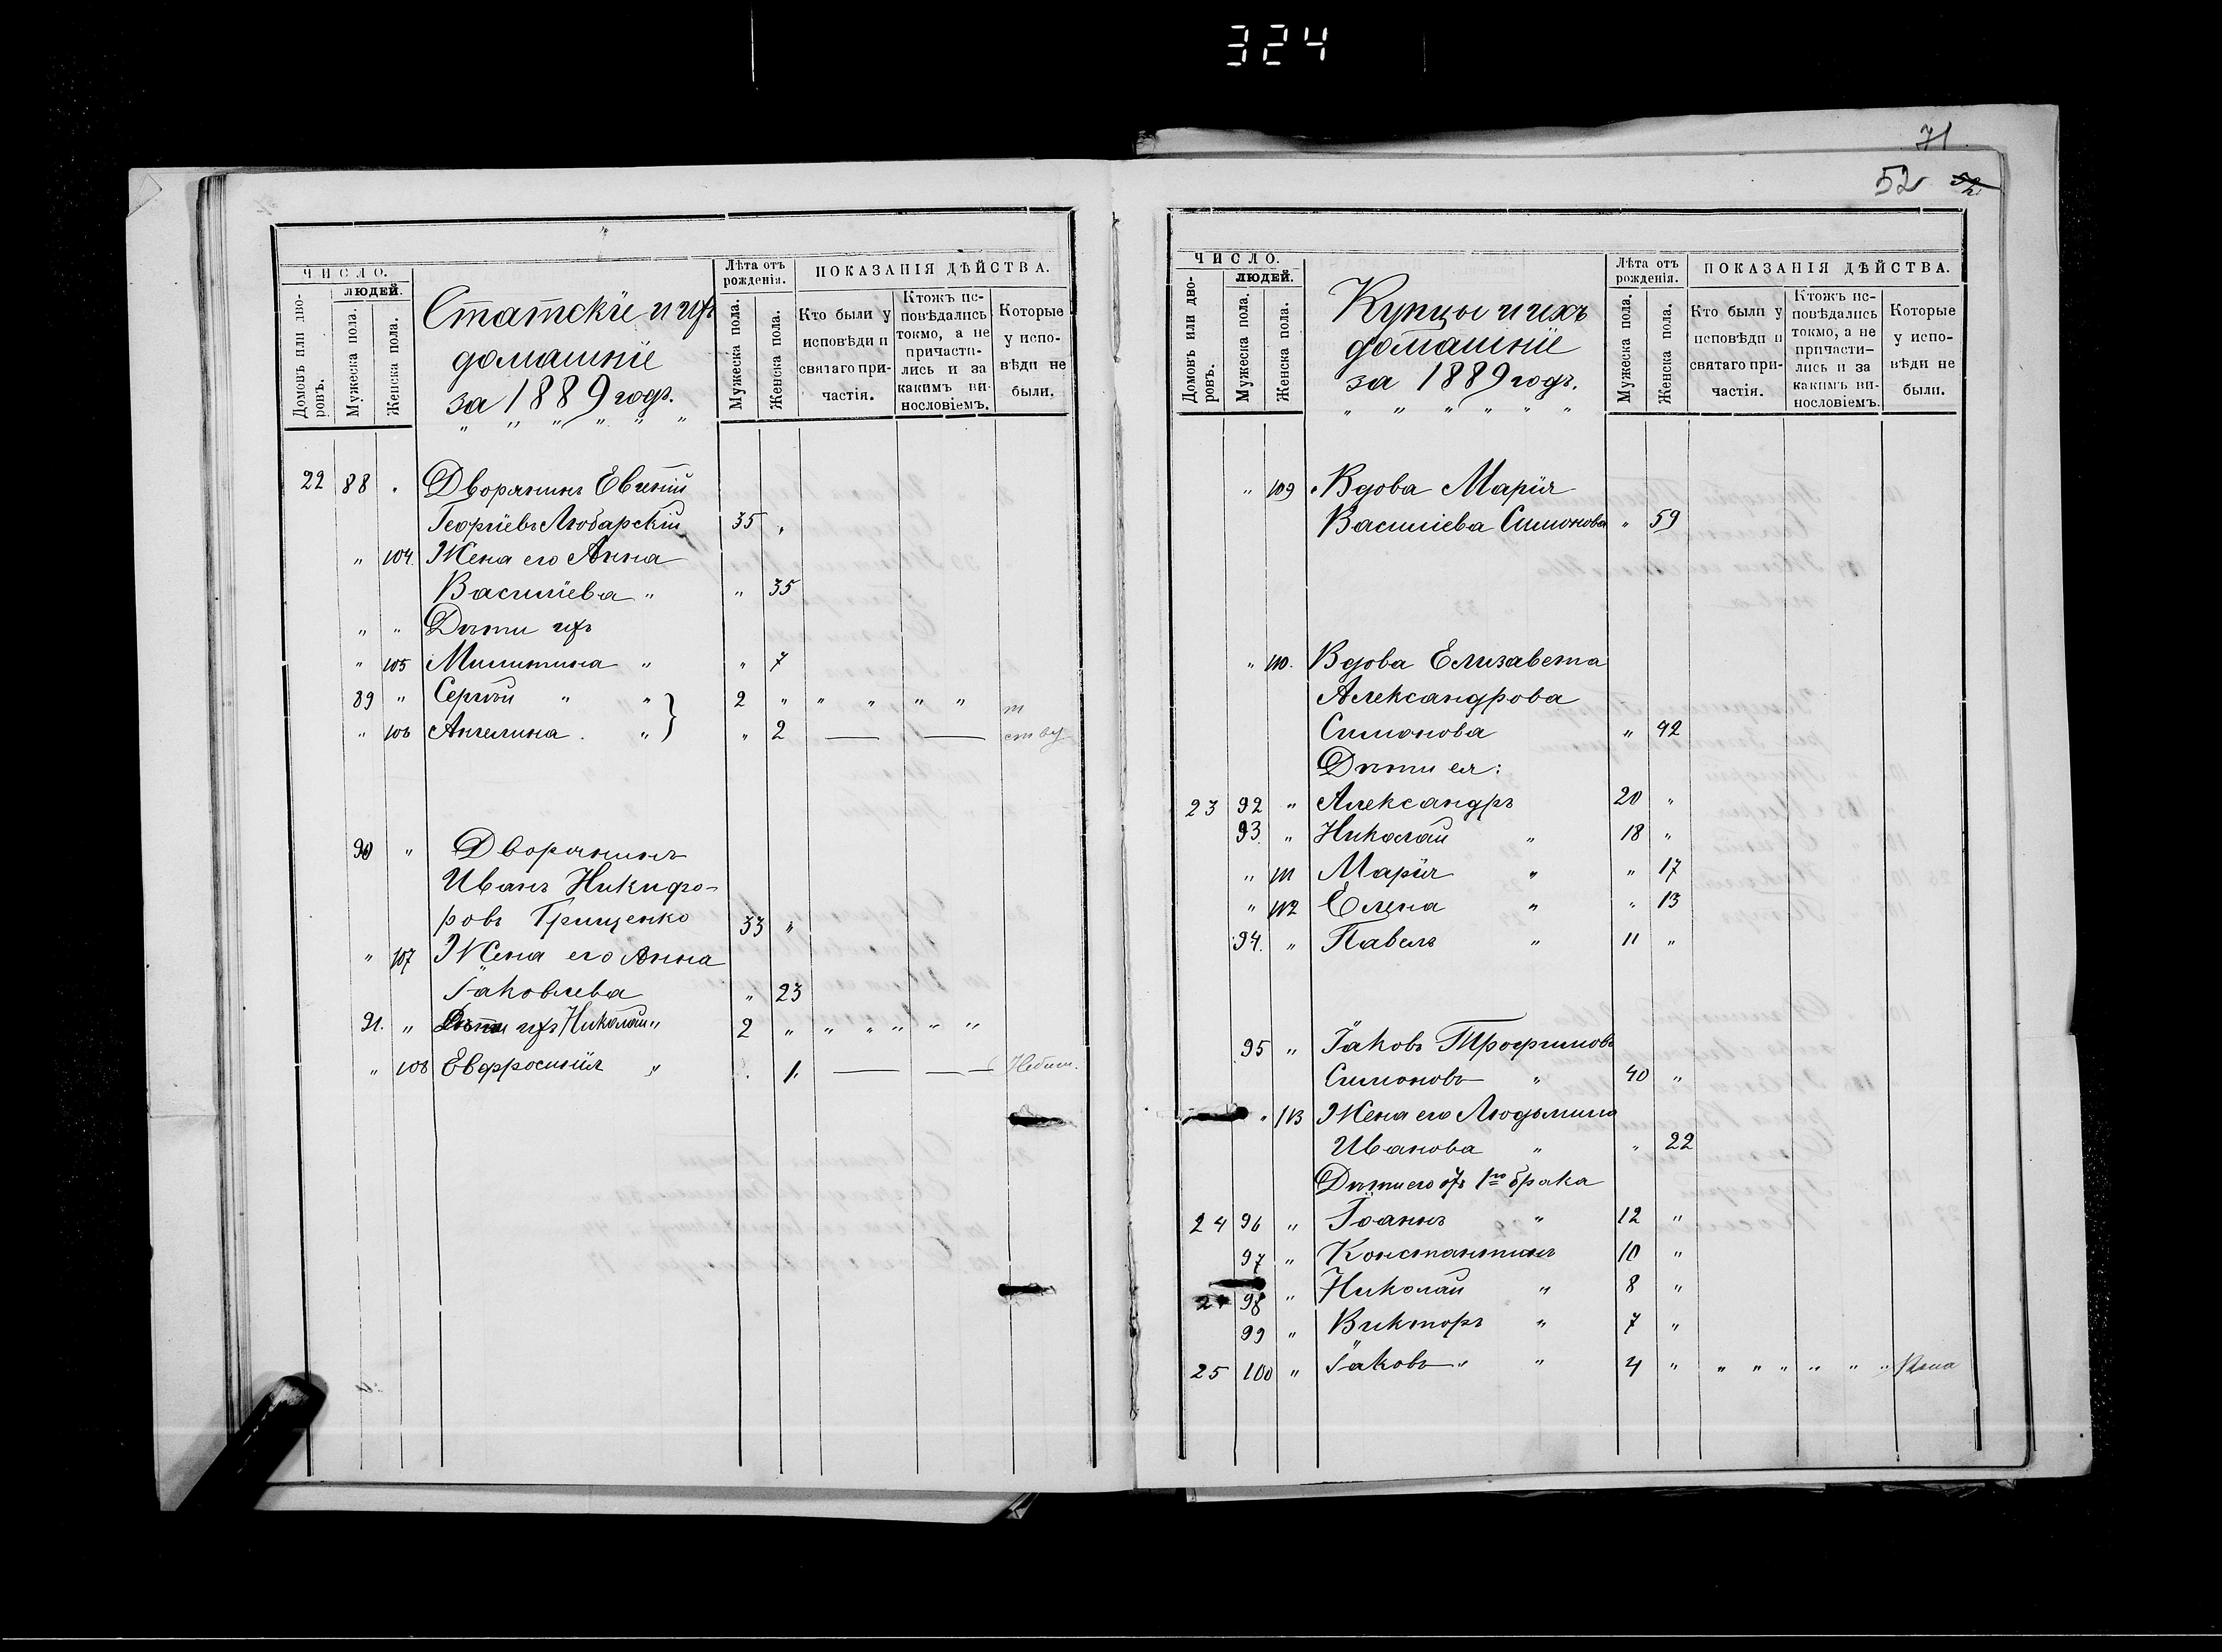 324
71
52
ЧИСЛО.
ЛЮДЕЙ.
Домовъ или дво-
ровъ.
Мужеска пола.
Женска пола.
Статскіе и ихъ
домашніе
за 1889 годъ.
Лѣта отъ
рожденія.
Мужеска пола.
Женска пола.
ПОКАЗАНІЯ ДѢЙСТВА.
Кто были у
исповѣди и
святаго при-
частія.
Ктожъ ис-
повѣдались
токмо, а не
причасти-
лись и за
какимъ ви-
нословіемъ.
Которые
у испо-
вѣди не
были.
22 88 " Дворянинъ Евгеній
Георгіевъ Любарскій 35 "
" 104. Жена его Анна
Василіева " " 35
" " Дѣти ихъ
" 105 Милитина " " 7
89 " Сергѣй " " 2 " " " " "
" 106 Ангелина. " " 2
90 " Дворянинъ
Иванъ Никифо-
ровъ Грищенко 33 "
" 107 Жена его Анна
Іаковлева " 23
91. " Дѣти ихъ Николай " 2 " " " " " "
" 108 Евфросинія " 1.
ЧИСЛО.
ЛЮДЕЙ.
Домовъ или дво-
ровъ.
Мужеска пола.
Женска пола.
Купцы и ихъ
домашніе
за 1889 годъ.
" " " " " "
Лѣта отъ
рожденія.
Мужеска пола.
Женска пола.
ПОКАЗАНІЯ ДѢЙСТВА.
Кто были у
исповѣди и
святаго при-
частія.
Ктожъ ис-
повѣдались
токмо, а не
причасти-
лись и за
какимъ ви-
нословіемъ.
Которые
у испо-
вѣди не
были.
" 109 Вдова Марія
Василіева Симонова " 59
" 110. Вдова Елизавета
Александрова
Симонова " 42
Дѣти ея:
23 92 " Александръ 20 "
93. " Николай " 18 "
" 111 Марія " " 17
" 112 Елена " " 13
94. " Павелъ " 11 "
95 " Іаковъ Трофимовъ
Симоновъ " 40 "
" 113 Жена его Людьмила
Иванова " " 22
Дѣти его отъ 1го брака
24 96 " Іоаннъ " 12 "
97 " Константинъ 10 "
98 " Николай " 8 "
99 " Викторъ " 7 "
25 100 " Іаковъ " " 4 " " " " " " "